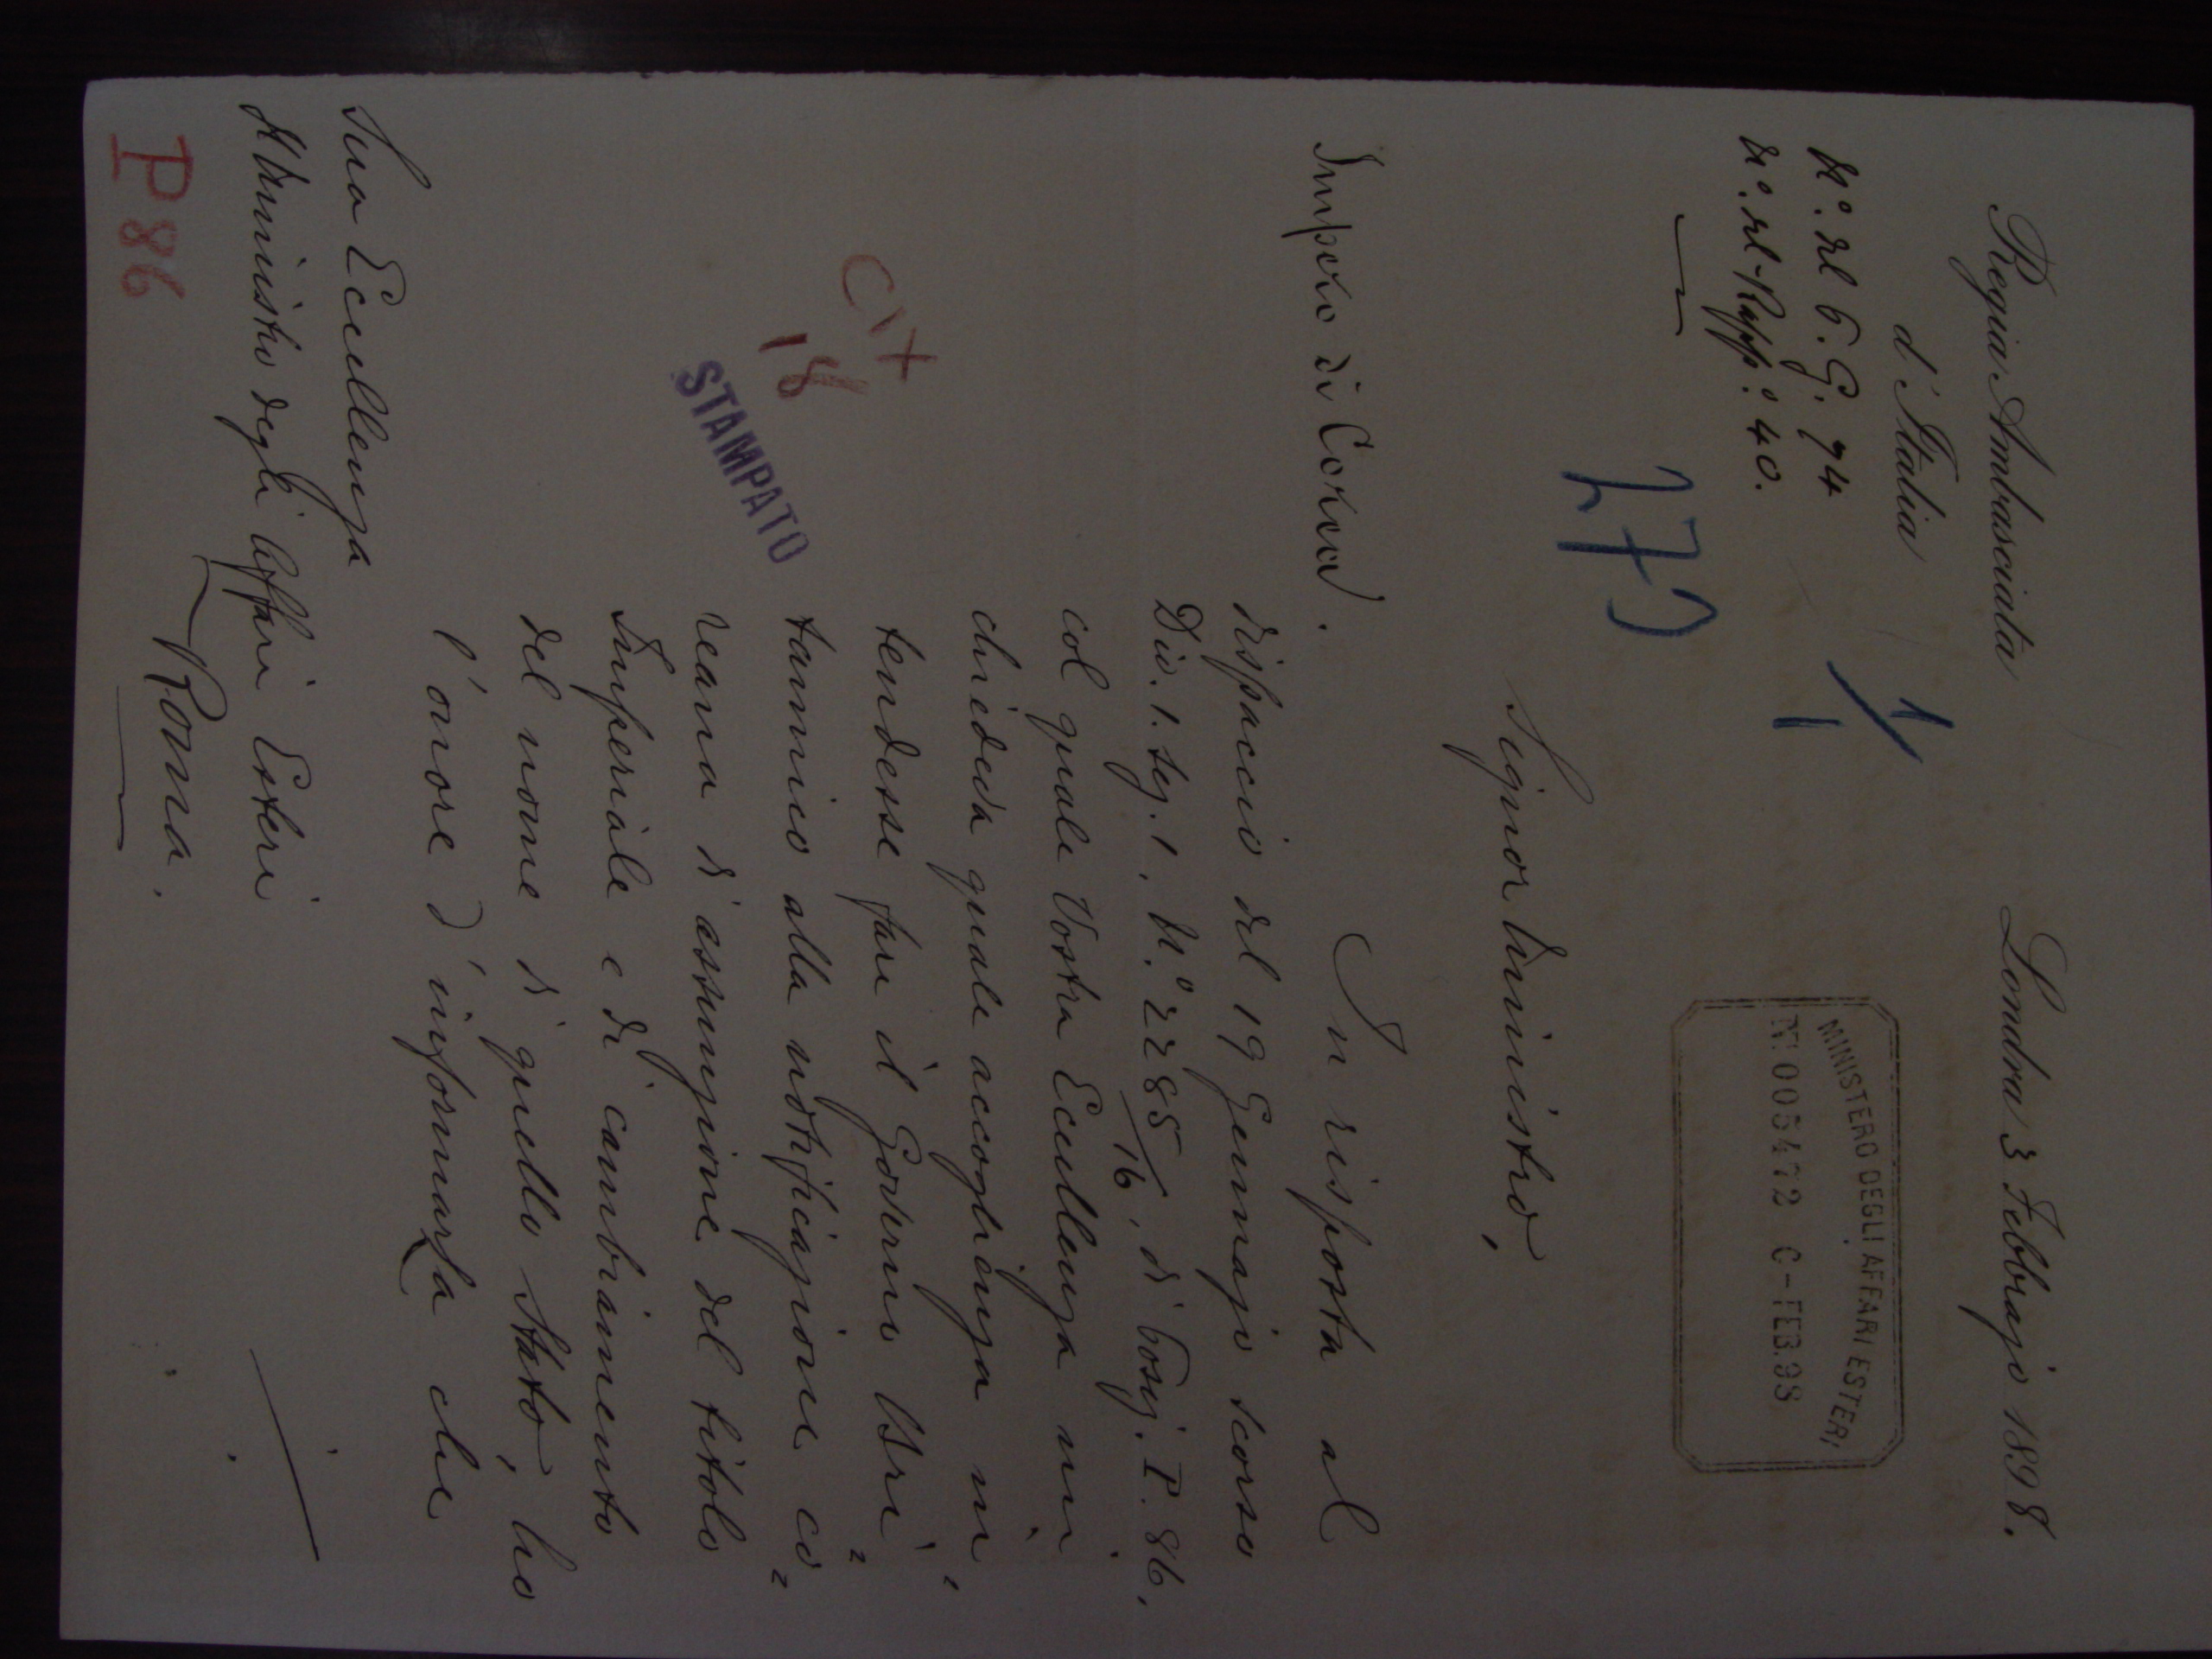 Regia Ambasciata
d'Italia
Londra 3 Febbrajo 1898.
N°. del C. G. 74
N°. del Rapp.° 40.
1/1
273
MINISTERO DEGLI AFFARI ESTERI
N° 005472 C - FEB. 98
Signor Ministro,
Impero di Corea.
In risposta al
dispaccio del 19 Gennajo scorso
Div. 1. Seg. 1, N.° 2285/16, di Posiz. P. 86,
col quale Vostra Eccellenza mi
chiedeva quale accoglienza in„
tendesse fare il Governo Bri„
tannico alla notificazione co„
reana d'assunzione del titolo
Imperiale e di cambiamento
del nome di quello Stato, ho
l'onore d'informarLa che
Cit
18
STAMPATO
Sua Eccellenza
Il Ministro degli Affari Esteri
Roma.
P 86